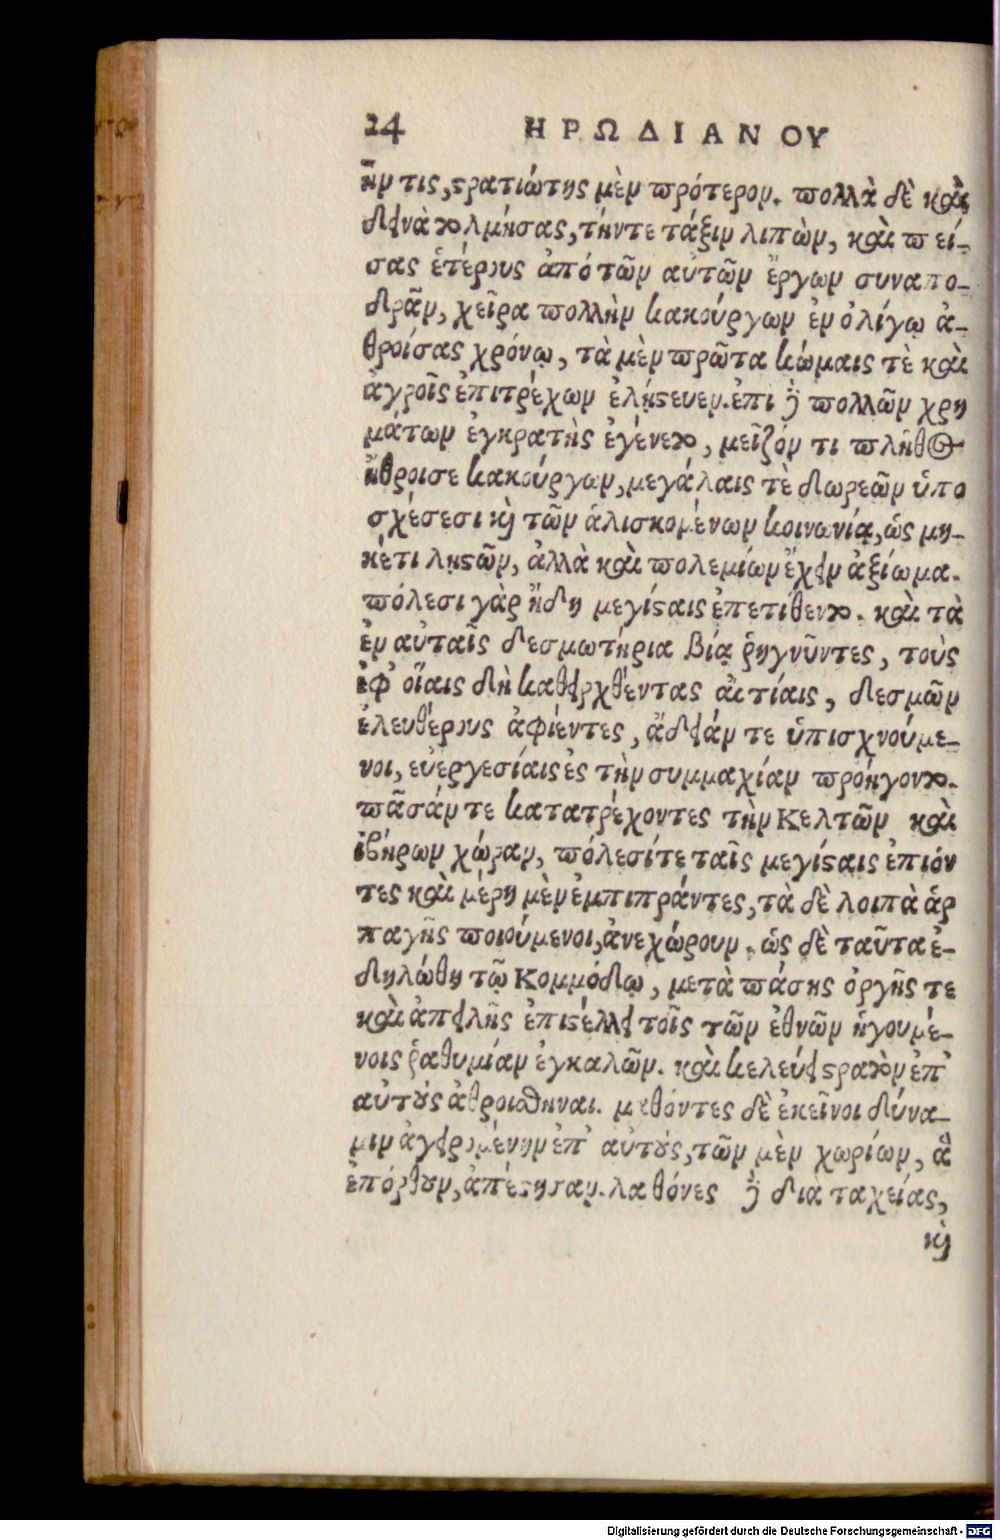 24 ΗΡΩΔΙΑΝΟΥ
ἦν τις, στρατιώτης μὲν πρότερον. πολλὰ δὲ καὶ
δεινὰ τολμήσας, τήν τε τάξιν λιπὼν, καὶ πεί-
σας ἑτέρους ἀπὸ τῶν αὐτῶν ἔργων συναπο-
δρᾶν, χεῖρα πολλὴν κακούργων ἐν ὀλίγῳ ἀ-
θροίσας χρόνῳ, τὰ μὲν πρῶτα κώμαις τὲ καὶ
ἀγροῖς ἐπιτρέχων ἐλήστευεν. ἐπὶ δὲ πολλῶν χρη
μάτων ἐγκρατὴς ἐγένετο, μεῖζόν τι πλῆθος
ἤθροισε κακούργων, μεγάλαις τὲ δωρεῶν ὑπο
σχέσεσι καὶ τῶν ἁλισκομένων κοινωνίᾳ, ὡς μη-
κέτι λῃστῶν, ἀλλὰ καὶ πολεμίων ἔχειν ἀξίωμα.
πόλεσι γὰρ ἤδη μεγίσταις ἐπετίθεντο. καὶ τὰ
ἐν αὐταῖς δεσμωτήρια βίᾳ ῥηγνῦντες, τοὺς
ἐφ' οἵαις δὴ καθειρχθέντας αἰτίαις, δεσμῶν
ἐλευθέρους ἀφιέντες, ἄδειάν τε ὑπισχνούμε-
νοι, εὐεργεσίαις ἐς τὴν συμμαχίαν προήγοντο.
πᾶσάν τε κατατρέχοντες τὴν Κελτῶν καὶ
ἰβήρων χώραν, πόλεσί τε ταῖς μεγίσταις ἐπιόν
τες καὶ μέρη μὲν ἐμπιπράντες, τὰ δὲ λοιπὰ ἁρ
παγῆς ποιούμενοι, ἀνεχώρουν. ὡς δὲ ταῦτα ἐ-
δηλώθη τῷ Κομμόδῳ, μετὰ πάσης ὀργῆς τε
καὶ ἀπειλῆς ἐπιστέλλει τοῖς τῶν ἐθνῶν ἡγουμέ-
νοις ῥαθυμίαν ἐγκαλῶν. καὶ κελεύει στρατὸν ἐπ'
αὐτοὺς ἀθροισθῆναι. μαθόντες δὲ ἐκεῖνοι δύνα-
μιν ἀγειρομένην ἐπ' αὐτοὺς, τῶν μὲν χωρίων, ἃ
ἐπόρθουν, ἀπέστησαν. λαθόνες δὲ διὰ ταχείας,
καὶ
Digitalisierung gefördert durch die Deutsche Forschungsgemeinschaft - DFG